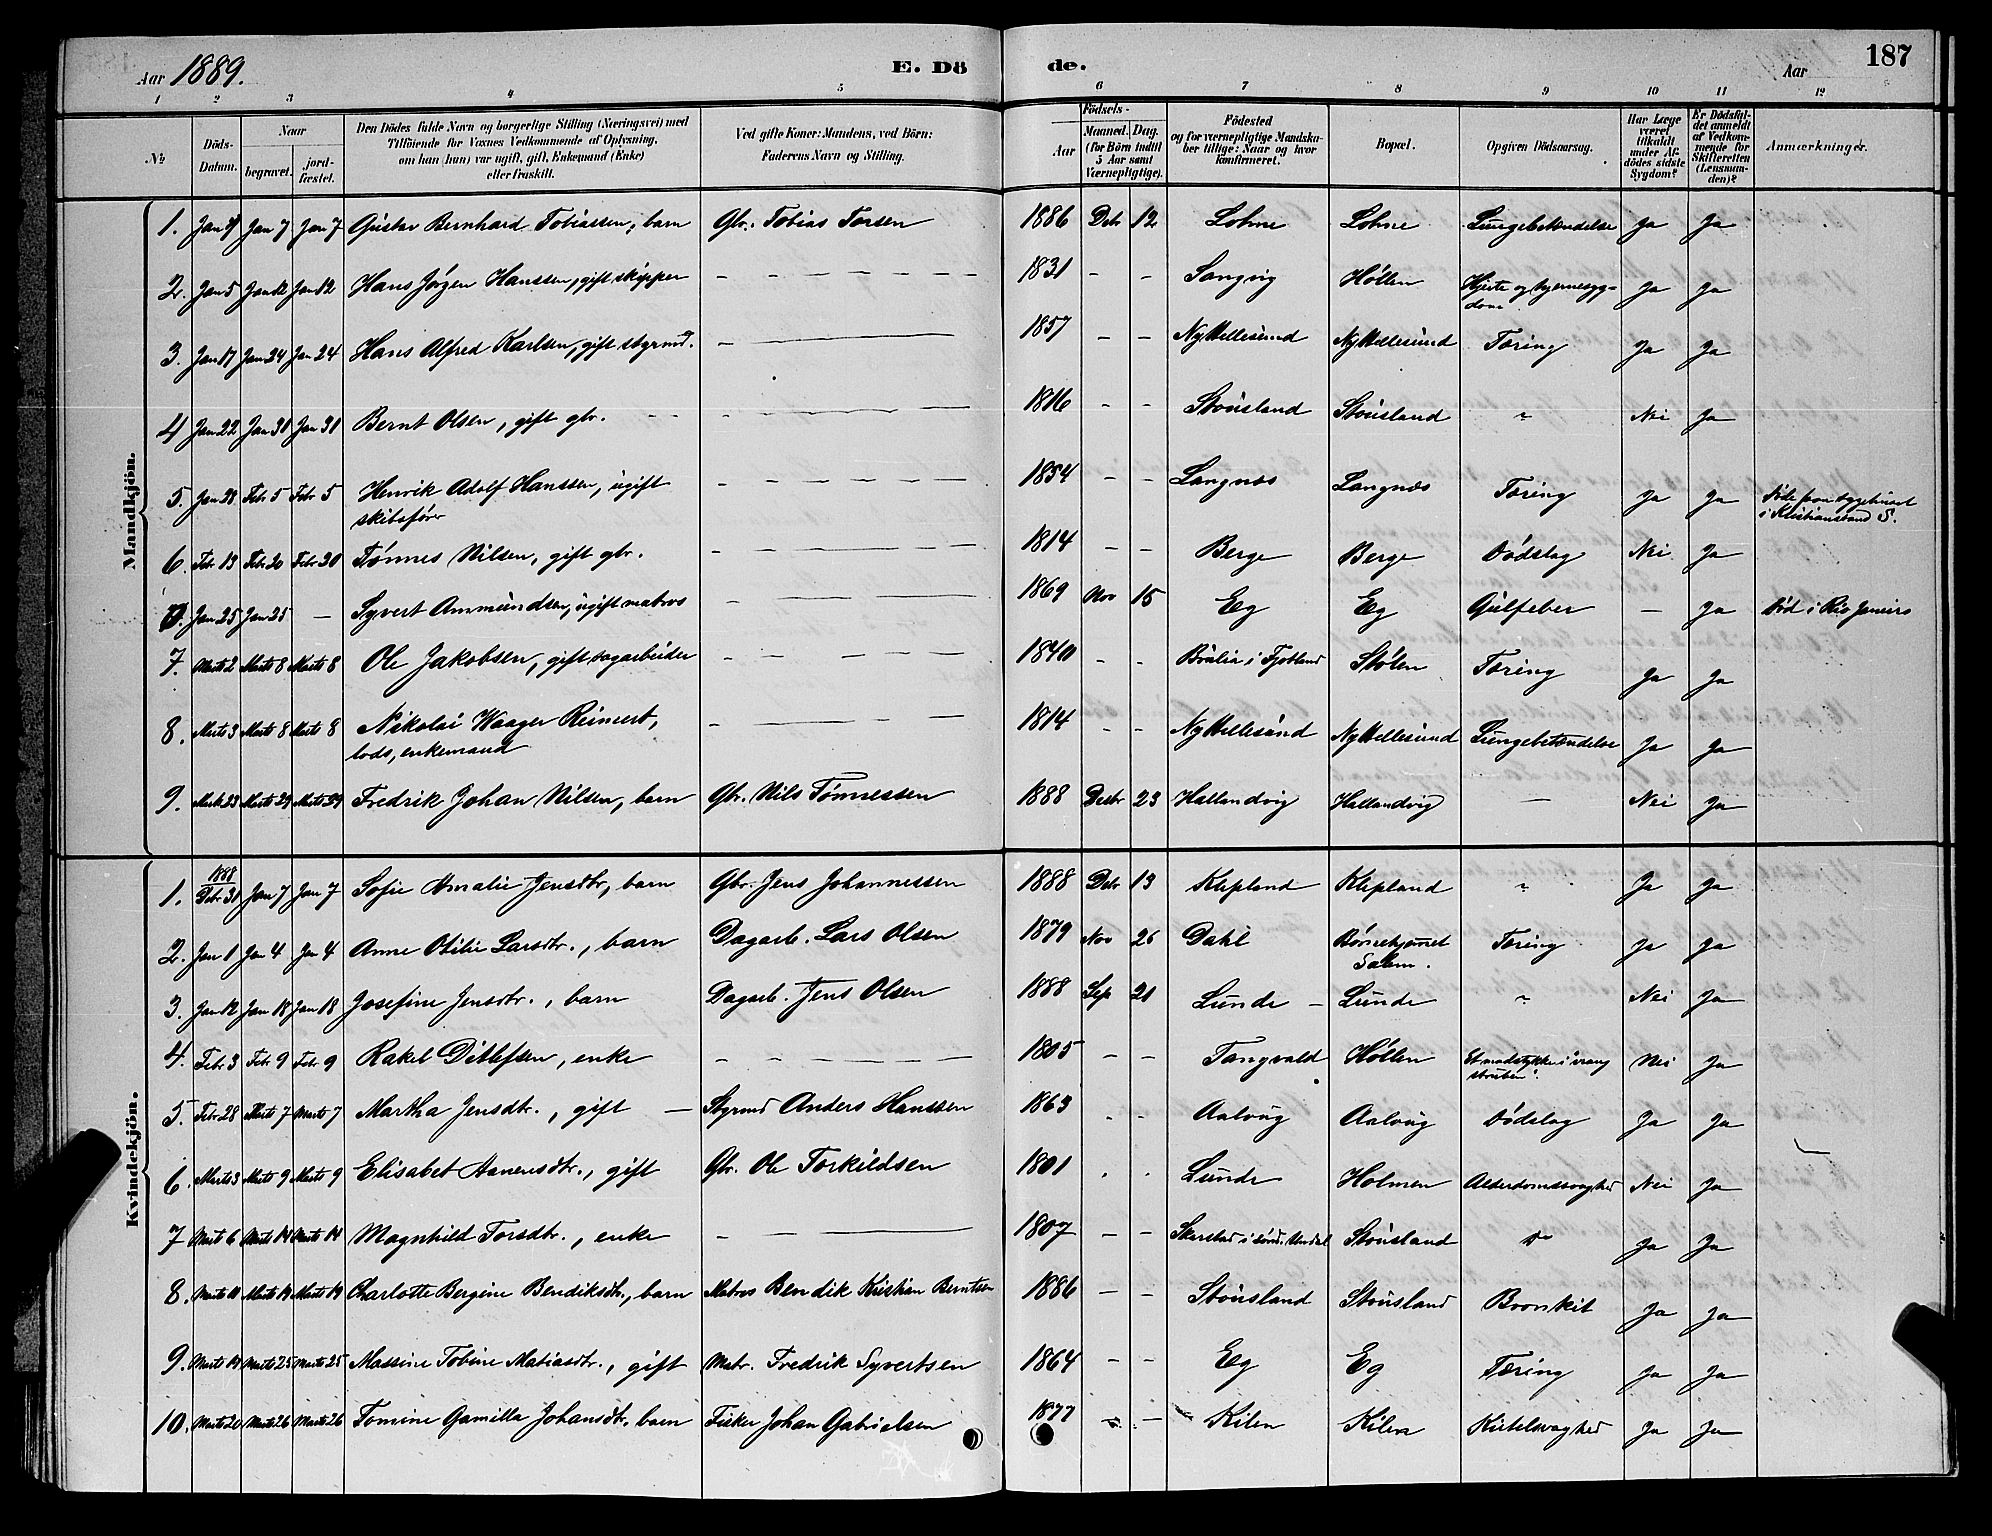 Aar 1889. E. Dö de. Aar 187
1 2 3 4 5 6 7 8 9 10 11 12
№ Döds-Datum. Naar begravet. jord-fæstet. Den Dödes fulde Navn og borgerlige Stilling (Næringsvei) med Tilföiende for Voxnes Vedkommende af Oplysning, om han (hun) var ugift, gift, Enkemand (Enke) eller fraskilt. Ved gifte Koner: Mandens, ved Börn: Faderens Navn og Stilling. Födsels- Aar Maaned. Dag. (for Börn indtil 5 Aar samt Værnepligtige). Födested og for værnepligtige Mandskaber tillige: Naar og hvor konfirmeret. Bopæl. Opgiven Dödsaarsag. Har Læge været tilkaldt under Afdödes sidste Sygdom? Er Dödsfaldet anmeldt af Vedkommende for Skifteretten (Lensmanden)? Anmærkninger.
Mandkjön.
1. Jan Jan 7 Jan 7 Gustav Bernhard Tobiassen, barn Gbr. Tobias Torsen 1886 Debr 12 Lohne Lohne Lungebetændelse Ja Ja
2. Jan 5 Jan 12 Jan 12 Hans Jörgen Hanssen, gift skipper - - 1831 - - Sangvig Höllen Hjerte og hjernesyg-
dom Ja Ja
3. Jan 17 Jan 24 Jan 24 Hans Alfred Karlsen, gift styrmd. - - 1857 - - Ny Hellesund Ny Hellesund Tæring Ja Ja
4 Jan 22 Jan 31 Jan 31 Bernt Olsen, gift gbr. - - 1816 - - Stousland Stousland " Nei Ja
5. Jan 28 Febr 5 Febr 5 Henrik Adolf Hanssen, ugift
skibsfører - - 1854 - - Langnæs Langnæs Tæring Ja Ja Döde paa sygehuset
i Kristianssand S.
6. Febr 13 Febr 20 Febr 20 Tönnes Nilsen, gift gbr. - - 1814 - - Berge Berge Dödslag Nei Ja
Jan 25 Jan 25 - Syvert Ammundsen, ugift matros - - 1869 Nov 15 Eg Eg Gulfeber - Ja Död i Rio Janeiro
7. Marts 2 Marts 8 Marts 8 Ole Jakobsen, gift dagarbeider - - 1840 - - i Fjotland Stölen Tæring Ja Ja
8. Marts 3 Marts 8 Marts 8 Nikolai Waager Reinert,
lods, enkemand - - 1814 - - Ny Hellesund Ny Hellesund Lungebetændelse Ja Ja
9. Marts 23 Marts 29 Marts 29 Fredrik Johan Nilsen, barn Gbr. Nils Tönnessen 1888 Decbr 23 Hallandvig Hallandvig - Nei Ja
Kvindekjön.
1. 1888
Debr 31 Jan 7 Jan 7 Sofie Amalie Jensdtr, barn Gbr. Jens Johannessen 1888 Debr 13 Klepland Klepland " Ja Ja
2. Jan 1 Jan 4 Jan 4 Anne Otilie Larsdtr., barn Dagarb. Lars Olsen 1879 Nov 26 Dahl Börnehjemmet
Salem. Tæring Ja Ja
3. Jan 12 Jan 18 Jan 18 Josefine Jensdtr., barn Dagarb. Jens Olsen 1888 Sep 21 Lunde - Lunde " Nei Ja
4. Febr 3 Febr 9 Febr 9 Rakel Ditlefsen, enke - - 1805 - - Tangvald Höllen Et madstykke i "vrang
struben". Nei Ja
5. Febr 28 Marts 7 Marts 7 Martha Jensdtr., gift - Styrmd Anders Hanssen 1863 - - Aalvig Aalvig Dödslag Ja Ja
6. Marts 3 Marts 9 Marts 9 Elisabet Hanensdtr., gift Gbr. Ole Torkildsen 1801 . . Lunde Holmen Alderdomssvaghed Nei Ja
7 Marts 6 Marts 14 Marts 14 Magnhild Torsdtr., enke - - 1807 - - Skarstad i sönd. Undal Stousland Do Ja Ja
8. Marts Marts 19 Marts 19 Charlotte Bergine Bendiksdtr., barn Matros Bendik Kristian Berntsen 1886 - - Stousland Stousland Bronkit Ja Ja
9. Marts 19 Marts 25 Marts 25 Massine Tobine Matiasdtr., gift Matr. Fredrik Syvertsen 1864 - - Eg Eg Tæring Ja Ja
10. Marts 20 Marts 26 Marts 26 Tomine Gamilla Johansdtr. barn Fisker Johan Gabrielsen 1877 - - Kilen Kilen Kirtelsvaghed Ja Ja